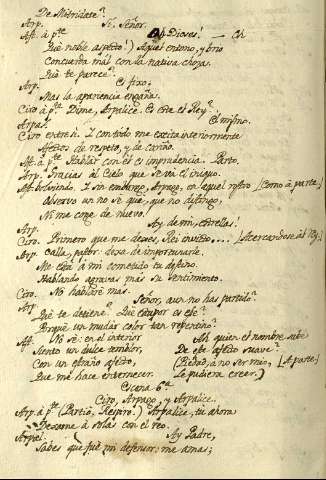 De Mitridate?
Arp. Si, Señor.
Ast. á p.te Oh Dioses! — Oh
Que noble aspecto!) Aquel entono, y brio
Concuerda mál con la nativa choza.
Què te parece?
Arp. Es fixo;
Mas la apariencia engaña.
Ciro á p.te Dime, Arpalice. Es este el Rey?
Arpa. El mismo.
Ciro entre si. I con todo me excita interiormente
Afectos de respeto, y de cariño.
Ast. á p.te Hablar con él es imprudencia. Parto.
Arp. Gracias al Cielo que se vá el iniquo.
Ast. volviendo. I sin embargo, Arpago, en aquel rostro (Como á parte.)
Observo un no se que, que no distingo,
Ni me coge de nuevo.
Arp. Ay de mi, estrellas!
Ciro. Primero que me dexes, Rei invicto.... (Acercandose al Rey.)
Arp. Calla, pastor: dexa de importunarle.
Me está á mi cometido tu destino.
Hablando agravas más su sentimiento.
Ciro. No hablaré mas.
Arp. Señor, aun no has partido?
Que te detiene? Què estupor es ese?
Porquè un mudar color tan repentino?
Ast. No sé: en el interior
Siento un dulce temblor,
Con un extraño afecto,
Que me hace enternecer.
Ah quien el nombre sabe
De este afecto suave?
(Piedad, á no ser mio, (A parte.)
Se pudiera creer.)
Escena 6.a
Ciro, Arpago, y Arpalice.
Arp. á p.te (Partió. Respiro.) Arpalice, tu ahora
Dexame á solas con el reo.
Arpal. Ay Padre,
Sabes que fué mi defensor: me amas;